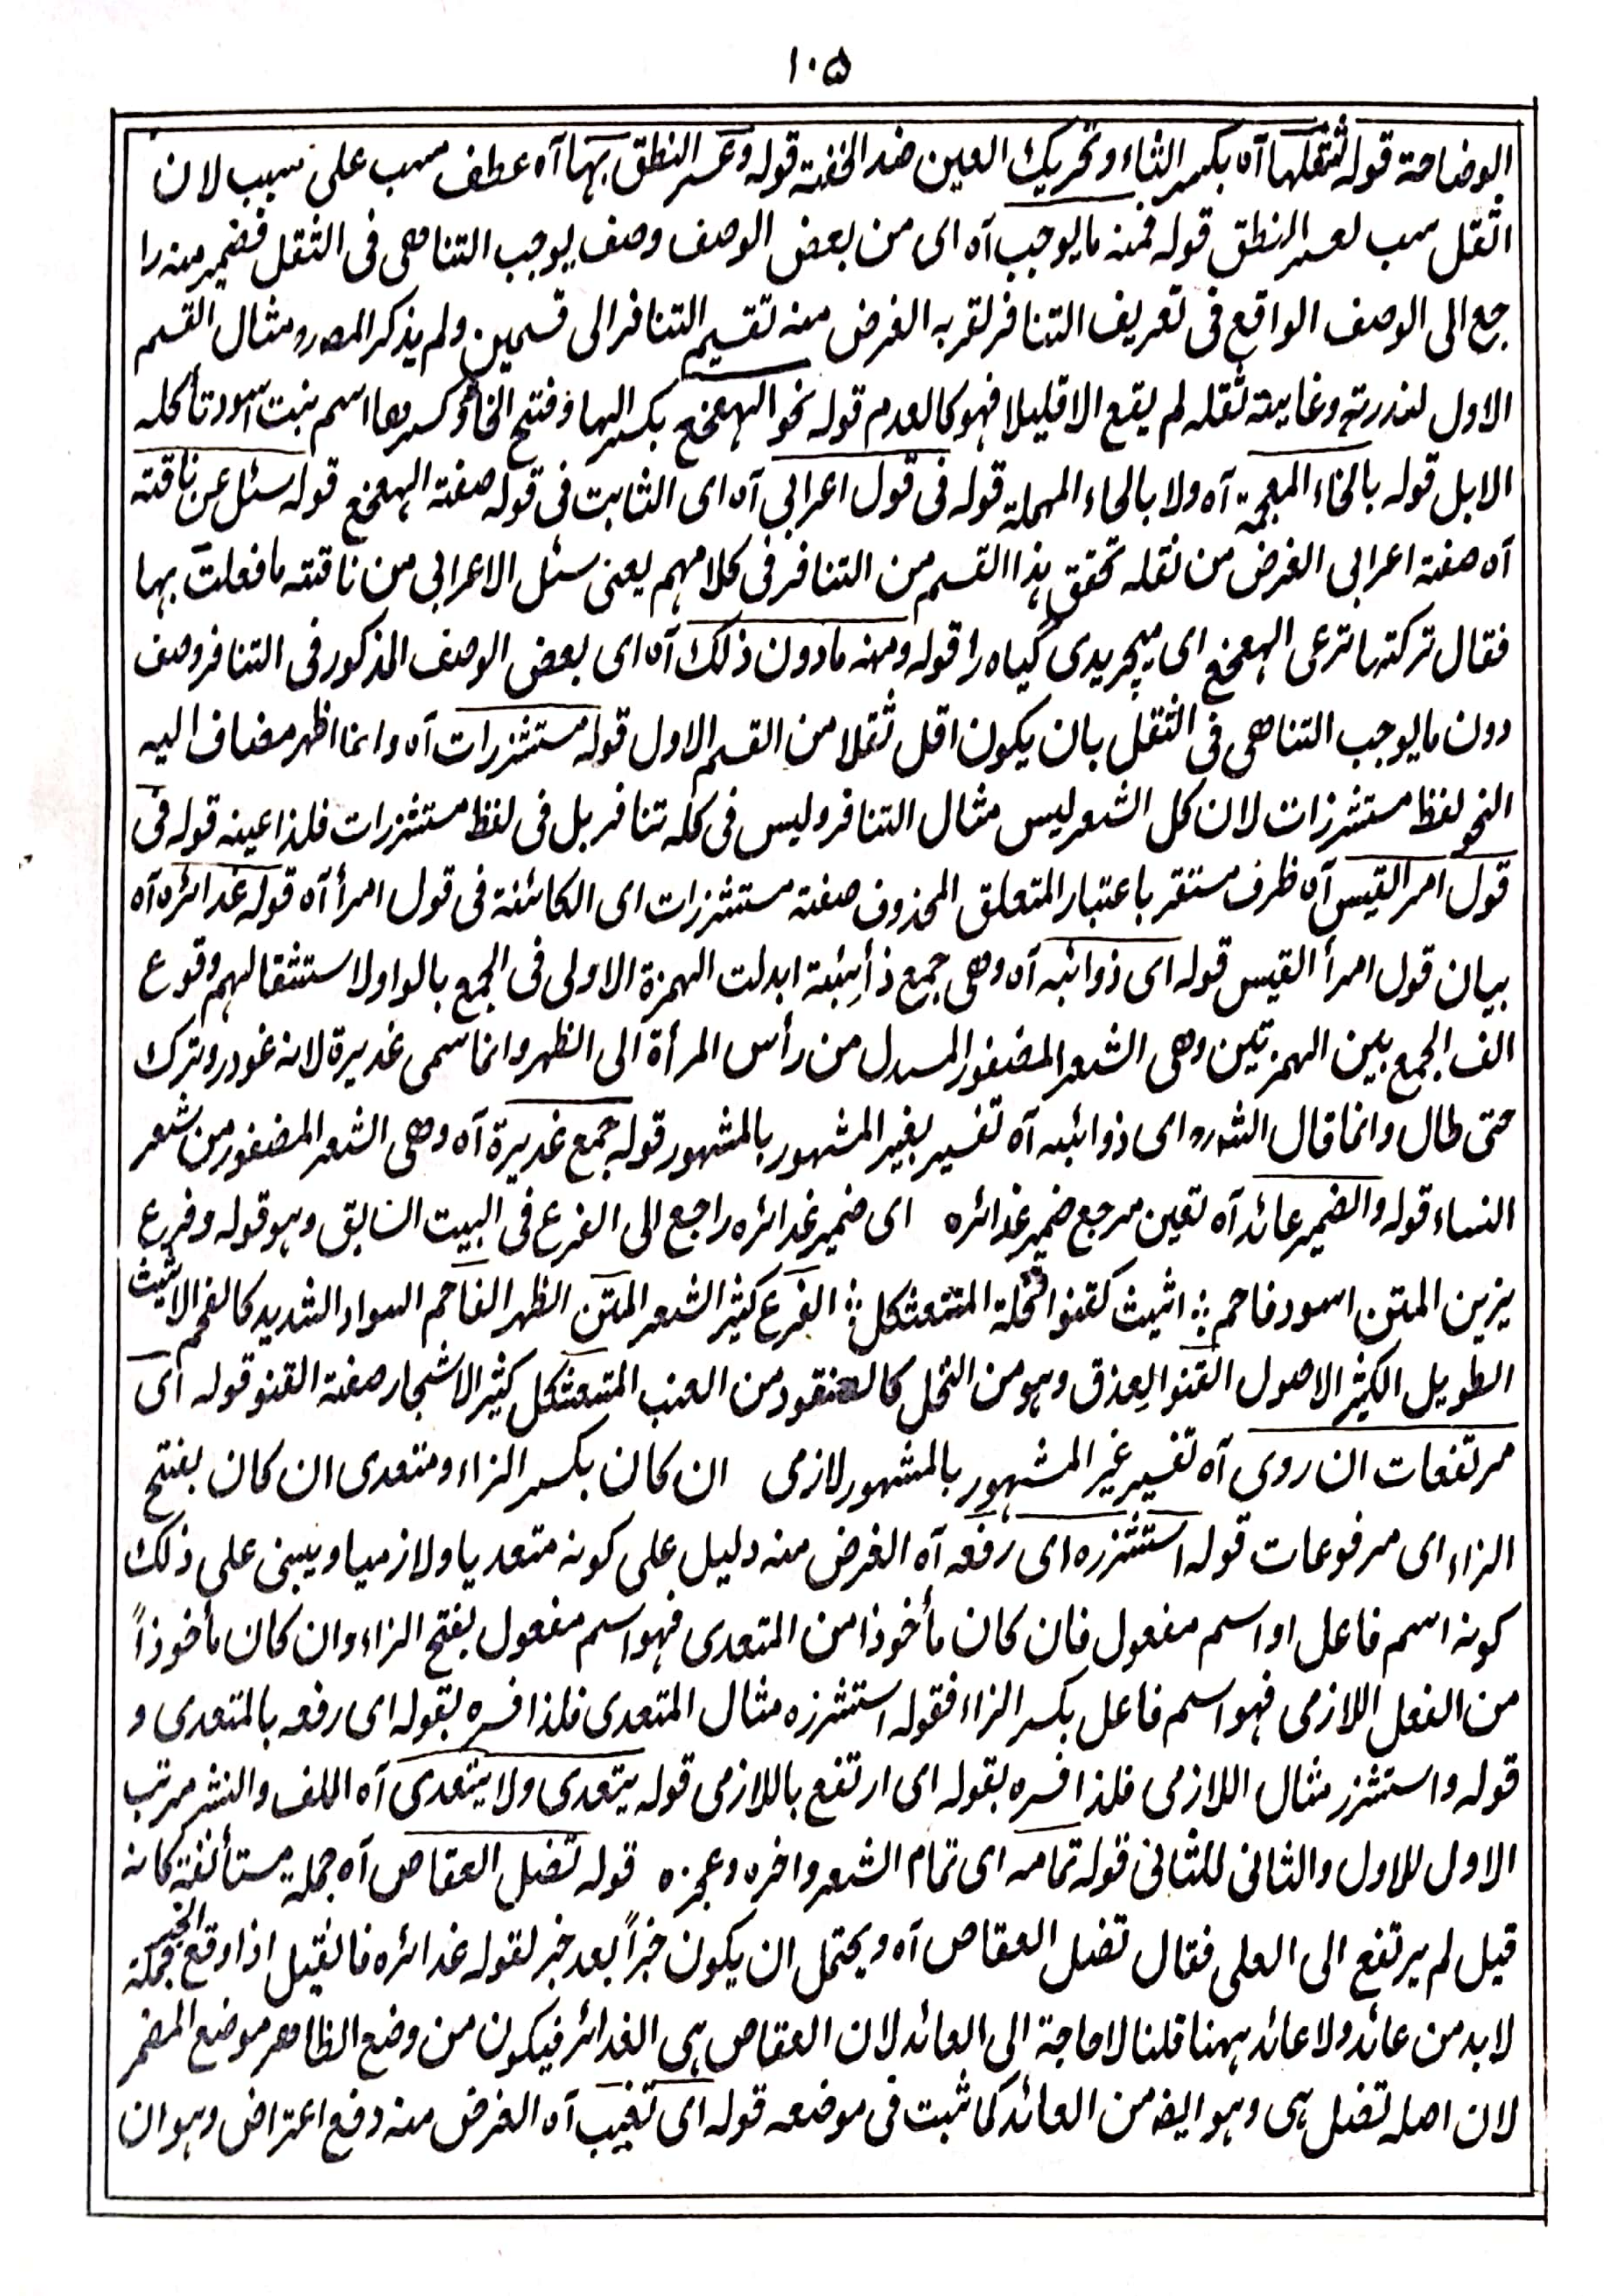 ١٠۵
الوضاحة قوله لثقلها آه بكسر الثاء وتحريك العين ضد الخفية قوله وعسر النطق بہا آه عطف مسبب على سبب لان
الثقل سبب لعسر النطق قوله فمنه ما يوجب آه اى من بعض الوصف وصف يوجب التناهى فى الثقل فضمير منه را
جع الى الوصف الواقع فى تعريف التنافر لقربه الغرض منه تقسيم التنافر الى قسمين ولم يذكر المصرو مثال القسم
الاول لندرته وغايية ثقله لم يقع الا قليلا فهو كالعدم قوله نحو الہعخع بكسر الہا و فتح الخاء وكسرها اسم نبت اسود تأكله
الابل قوله بالخاء المعجمة آه ولا بالحاء المہملة قوله فى قول اعرابى آه اى الثابت فى قوله صفة الہعخع قوله سئل عن ناقته
آه صفة اعرابى الغرض من نقله تحقق ہذا القسم من التنافر فى كلامہم يعنى سئل الاعرابى من ناقته ما فعلت بہا
فقال تركتہا ترعى الہعخع اى ميچريدى گياه را قوله ومنه ما دون ذلك آه اى بعض الوصف المذكور فى التنافر وصف
دون ما يوجب التناهى فى الثقل بان يكون اقل ثقلا من القسم الاول قوله مستشزرات آه وانما اظهر مضاف اليه
النحو لفظ مستشزرات لان كل الشعر ليس مثال التنافر وليس فى كله تنافر بل فى لفظ مستشزرات فلذا عينه قوله فى
قول امر القيس آه ظرف مستقر باعتبار المتعلق المحذوف صفة مستشزرات اى الكائنة فى قول امرأ آه قوله غدائره آه
بيان قول امرأ القيس قوله اى ذوائبه آه وهى جمع ذأئبة ابدلت الہمزة الاولى فى الجمع بالواو لاستثقالہم وقوع
الف الجمع بين الہمزتين وهى الشعر المضفور المسدل من رأس المرأة الى الظهر وانما سمى غديرة لانه غودر وترك
حتى طال وانما قال الشرو اى ذوائبه آه تفسير بغير المشہور بالمشہور قوله جمع غديرة آه وهى الشعر المضفور من شعر
النساء قوله والضمير عائد آه تعين مرجع ضمير غدائره اى ضمير غدائره راجع الى الفرع فى البيت السابق وہو قوله وفرع
يزين المتن اسود فاحم ؞ اثيث كقنو النخلة المتعثكل ؞ الفرع كثير الشعر المتن الظهر الفاحم السواد الشديد كالفحم الاثيث
الطويل الكثير الاصول القنو العِذق وہو من النخل كالعنقود من العنب المتعثكل كثير الاشجار صفة القنو قوله اى
مرتفعات ان روى آه تفسير غير المشہور بالمشہور لازمى ان كان بكسر الزاء ومتعدى ان كان بفتح
الزاء اى مرفوعات قوله استشزره اى رفعه آه الغرض منه دليل على كونه متعديا ولازميا ويبنى على ذلك
كونه اسم فاعل او اسم مفعول فان كان مأخوذا من المتعدى فہو اسم مفعول بفتح الزاء وان كان مأخوذاً
من الفعل اللازمى فہو اسم فاعل بكسر الزاء فقوله استشزره مثال المتعدى فلذا فسره بقوله اى رفعه بالمتعدى و
قوله واستشزر مثال اللازمى فلذا فسره بقوله اى ارتفع باللازمى قوله يتعدى ولا يتعدى آه اللف والنشر مرتب
الاول للاول والثانى للثانى قوله تمامه اى تمام الشعر واخره وعجزه قوله تضل العقاص آه جملة مستأنفة كانه
قيل لم يرتفع الى العلى فقال تضل العقاص آه ويحتمل ان يكون خبراً بعد خبر لقوله غدائره فان قيل اذا وقع الخبر جملة
لا بد من عائد ولا عائد ہہنا قلنا لا حاجة الى العائد لان العقاص ہى الغدائر فيكون من وضع الظاهر موضع المضمر
لان اصله تضل ہى وہو ايضا من العائد كما ثبت فى موضعه قوله اى تغيب آه الغرض منه دفع اعتراض وہو ان